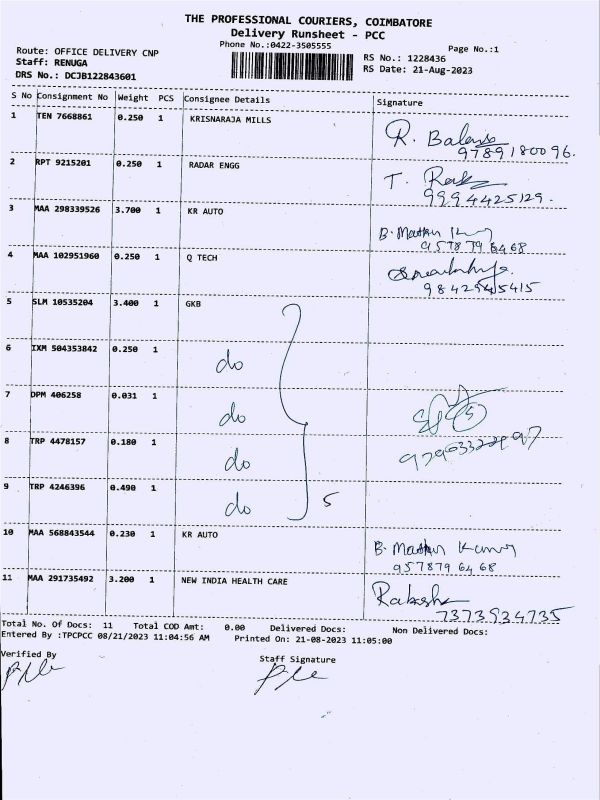 THE PROFESSIONAL COURIERS, COIMBATORE
Delivery Runsheet - PCC
Phone No.:0422-3505555
Page No.:1
Route: OFFICE DELIVERY CNP
RS No.: 1228436
Staff: RENUGA
RS Date: 21-Aug-2023
DRS No.: DCJB122843601
S No Consignment No Weight PCS Consignee Details Signature
1 TEN 7668861 0.250 1 KRISNARAJA MILLS
9789180096.
2 RPT 9215201 0.250 1 RADAR ENGG
9994425129.
3 MAA 298339526 3.700 1 KR AUTO
9578796468
4 MAA 102951960 0.250 1 Q TECH
5 SLM 10535204 3.400 1 GKB
6 IXM 504353842 0.250 1 do
7 DPM 406258 0.031 1 do
8 TRP 4478157 0.180 1 do
9 TRP 4246396 0.490 1 do 5
10 MAA 568843544 0.230 1 KR AUTO
9578796468
11 MAA 291735492 3.200 1 NEW INDIA HEALTH CARE
7373934735
Total No. Of Docs: 11 Total COD Amt: 0.00 Delivered Docs: Non Delivered Docs:
Entered By :TPCPCC 08/21/2023 11:04:56 AM Printed On: 21-08-2023 11:05:00
Verified By
Staff Signature